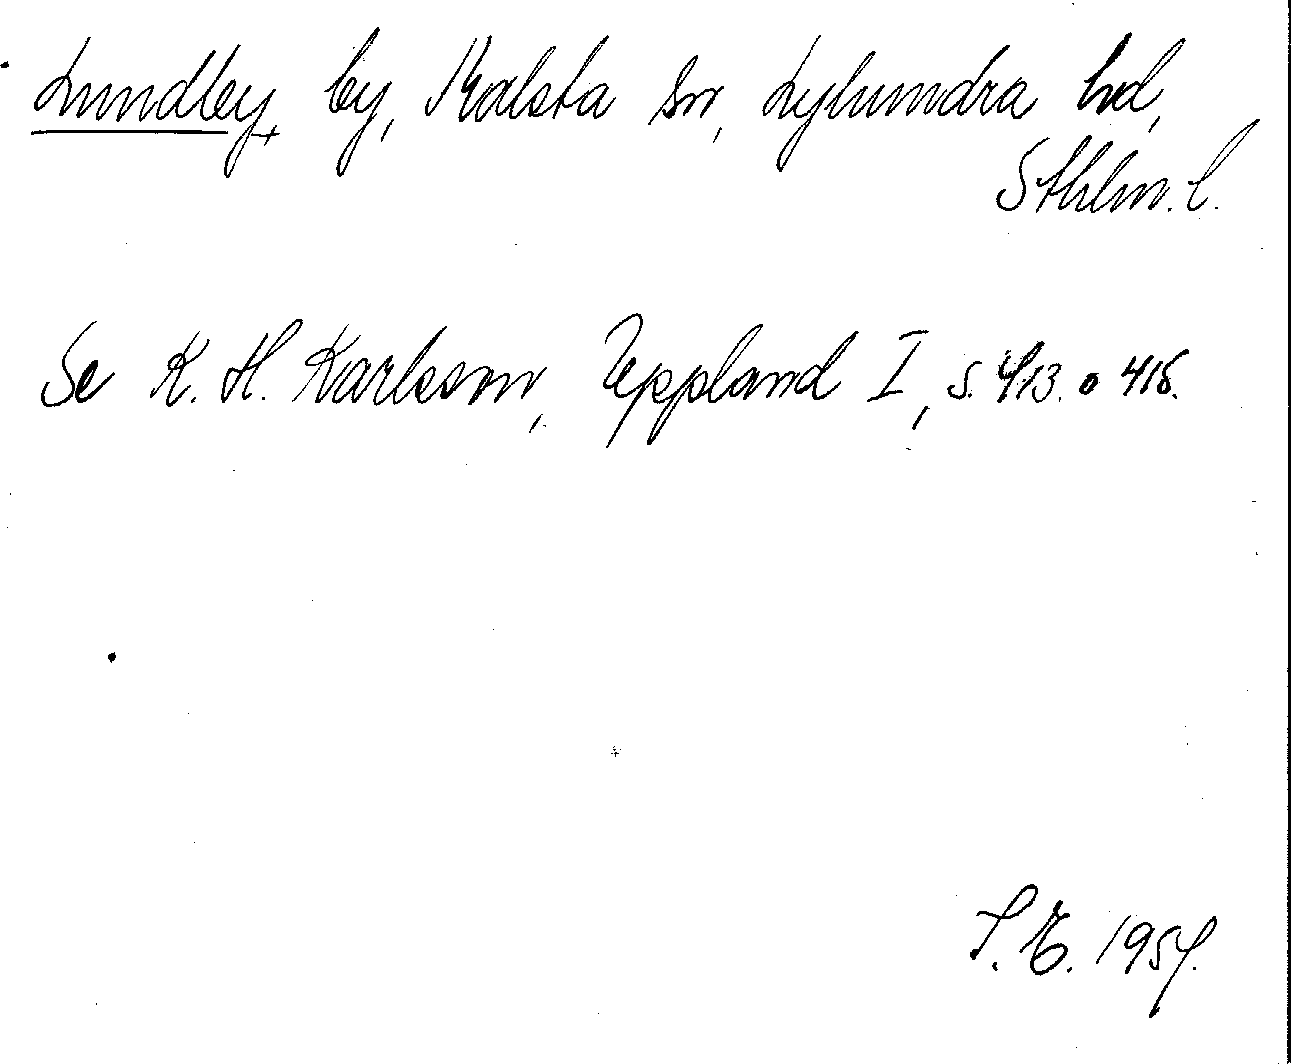 Lundby, by, Malsta sn, Lyhundra hd,
Sthlm. l.
Se K. H. Karlsson, Uppland I, s. 413. o 416.
S. E. 1954.